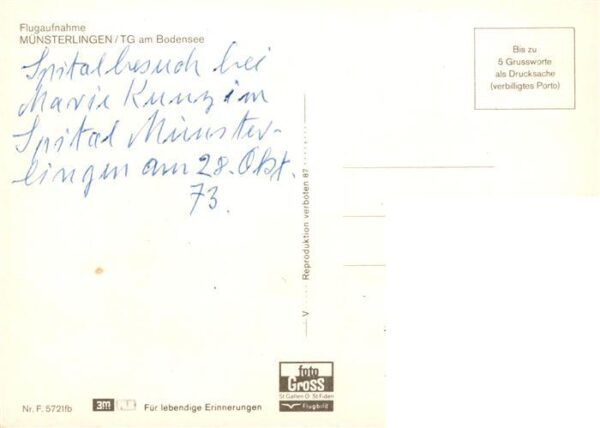 Flugaufnahme
MÜNSTERLINGEN/TG am Bodensee
Spitalbesuch bei
Marie Kunz im
Spital Münster-
lingen am 28. Okt.
73.
Bis zu
5 Grussworte
als Drucksache
(verbilligtes Porto)
V ..... Reproduktion verboten 8? .....
foto
Gross
St. Gallen O St. Fiden
Flugbild
Nr. F. 5721fb
3m
Für lebendige Erinnerungen